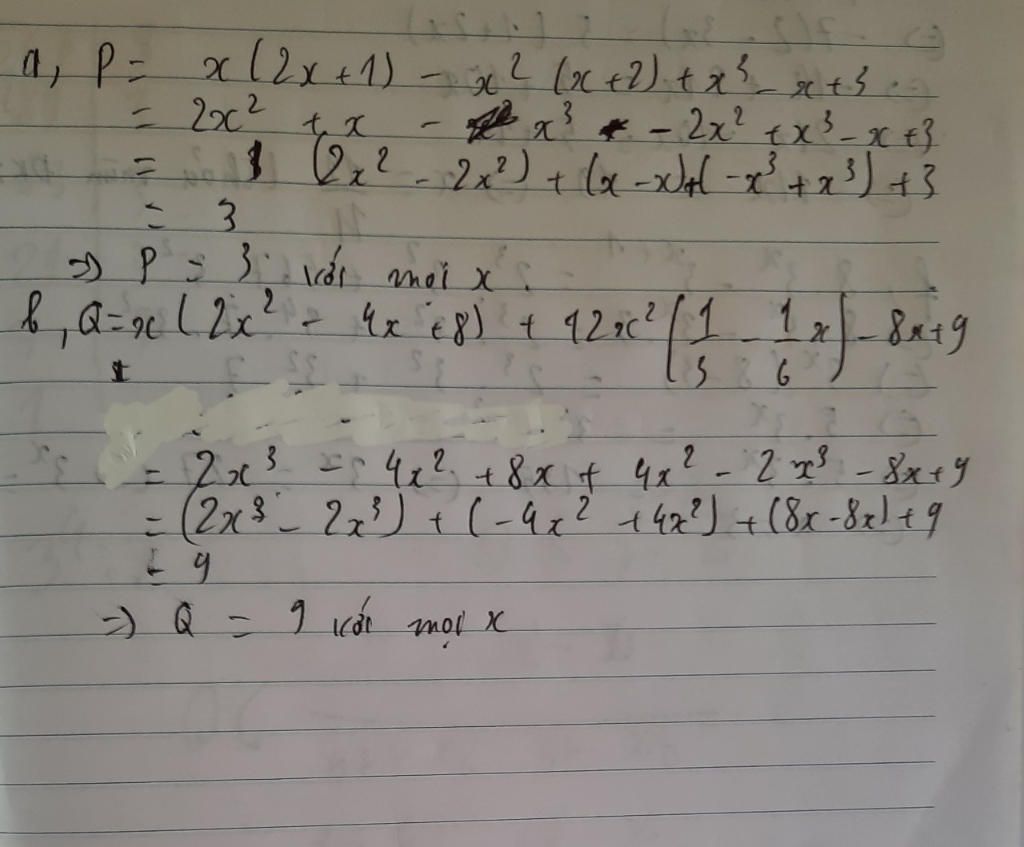 a, P = x(2x+1) - x² (x+2) + x³ - x + 3
= 2x² + x - x³ - 2x² + x³ - x + 3
= (2x² - 2x²) + (x - x) + (-x³ + x³) + 3
= 3
=> P = 3 với mọi x.
b, Q = x(2x² - 4x + 8) + 12x² (1/3 - 1/6 x) - 8x + 9
= 2x³ - 4x² + 8x + 4x² - 2x³ - 8x + 9
= (2x³ - 2x³) + (-4x² + 4x²) + (8x - 8x) + 9
= 9
=> Q = 9 với mọi x